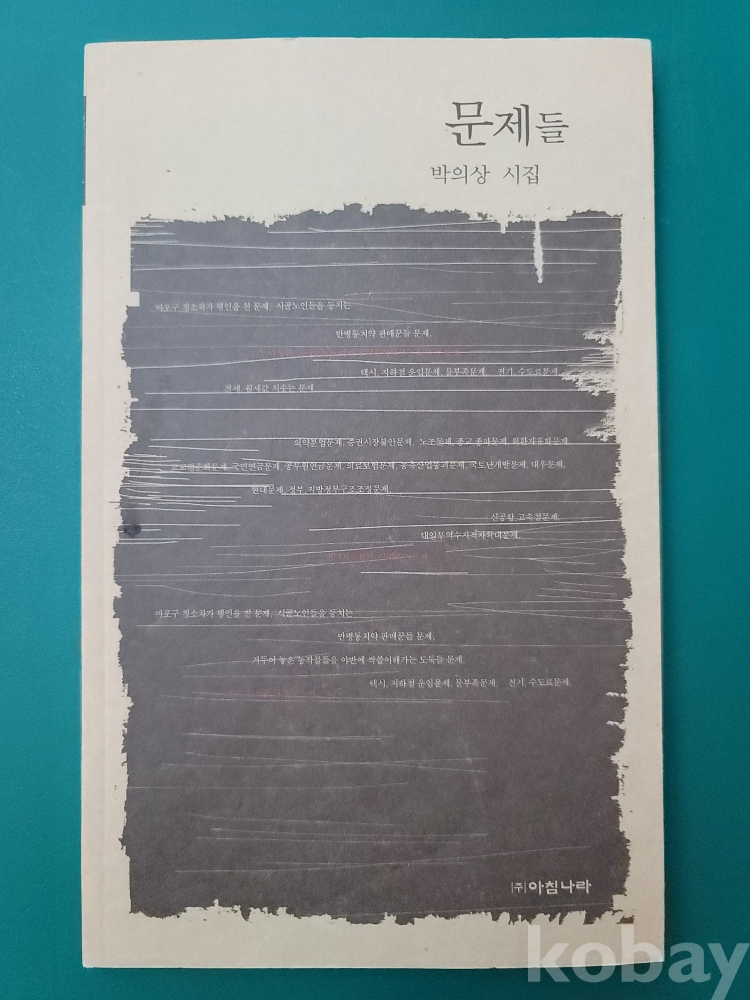 문제들
박의상 시집
마포구 청소차가 행인을 친 문제, 시골노인들을 등치는
만병통치약 판매꾼들 문제,
택시, 지하철 운임문제, 물부족문제, 전기, 수도료문제,
전세, 월세값 치솟는 문제
의약분쟁문제, 증권시장불안문제, 노조문제, 종교 종파문제, 외환자유화문제
고교평준화문제, 국민연금문제, 공무원연금문제, 의료보험문제, 농축산업붕괴문제, 국토난개발문제, 대우문제,
현대문제, 정부, 지방정부구조조정문제,
신공항, 고속철문제,
대일무역수지적자확대문제,
마포구 청소차가 행인을 친 문제, 시골노인들을 등치는
만병통치약 판매꾼들 문제,
거두어 놓은 농작물들을 야밤에 싹쓸이해가는 도둑들 문제,
택시, 지하철 운임문제, 물부족문제, 전기, 수도료문제,
(주)아침나라
kobay